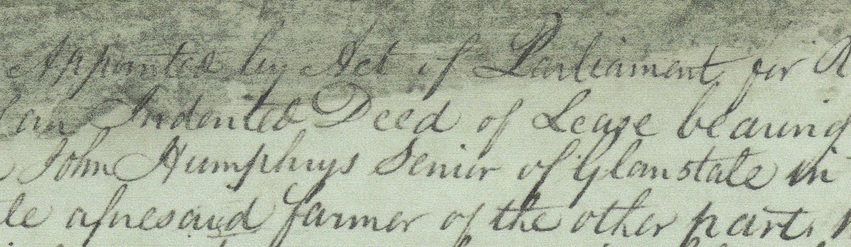 Appointed by Act of Parliament for R
an Indented Deed of Lease bearing
John Humphrys Senior of Glanstale in
le aforesaid farmer of the other part